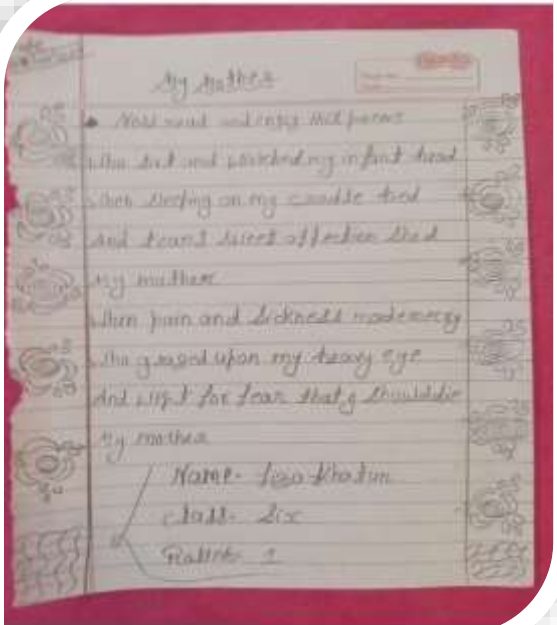 My Mother
Now read and enjoy the poems
Who sat and watched my infant head
When sleeping on my cradle bed
And tears sweet affection shed
My mother
When pain and sickness made me cry
Who gazed upon my heavy eye
And wept for fear that I should die
My mother
Name- Liza Khatun
Class- Six
1